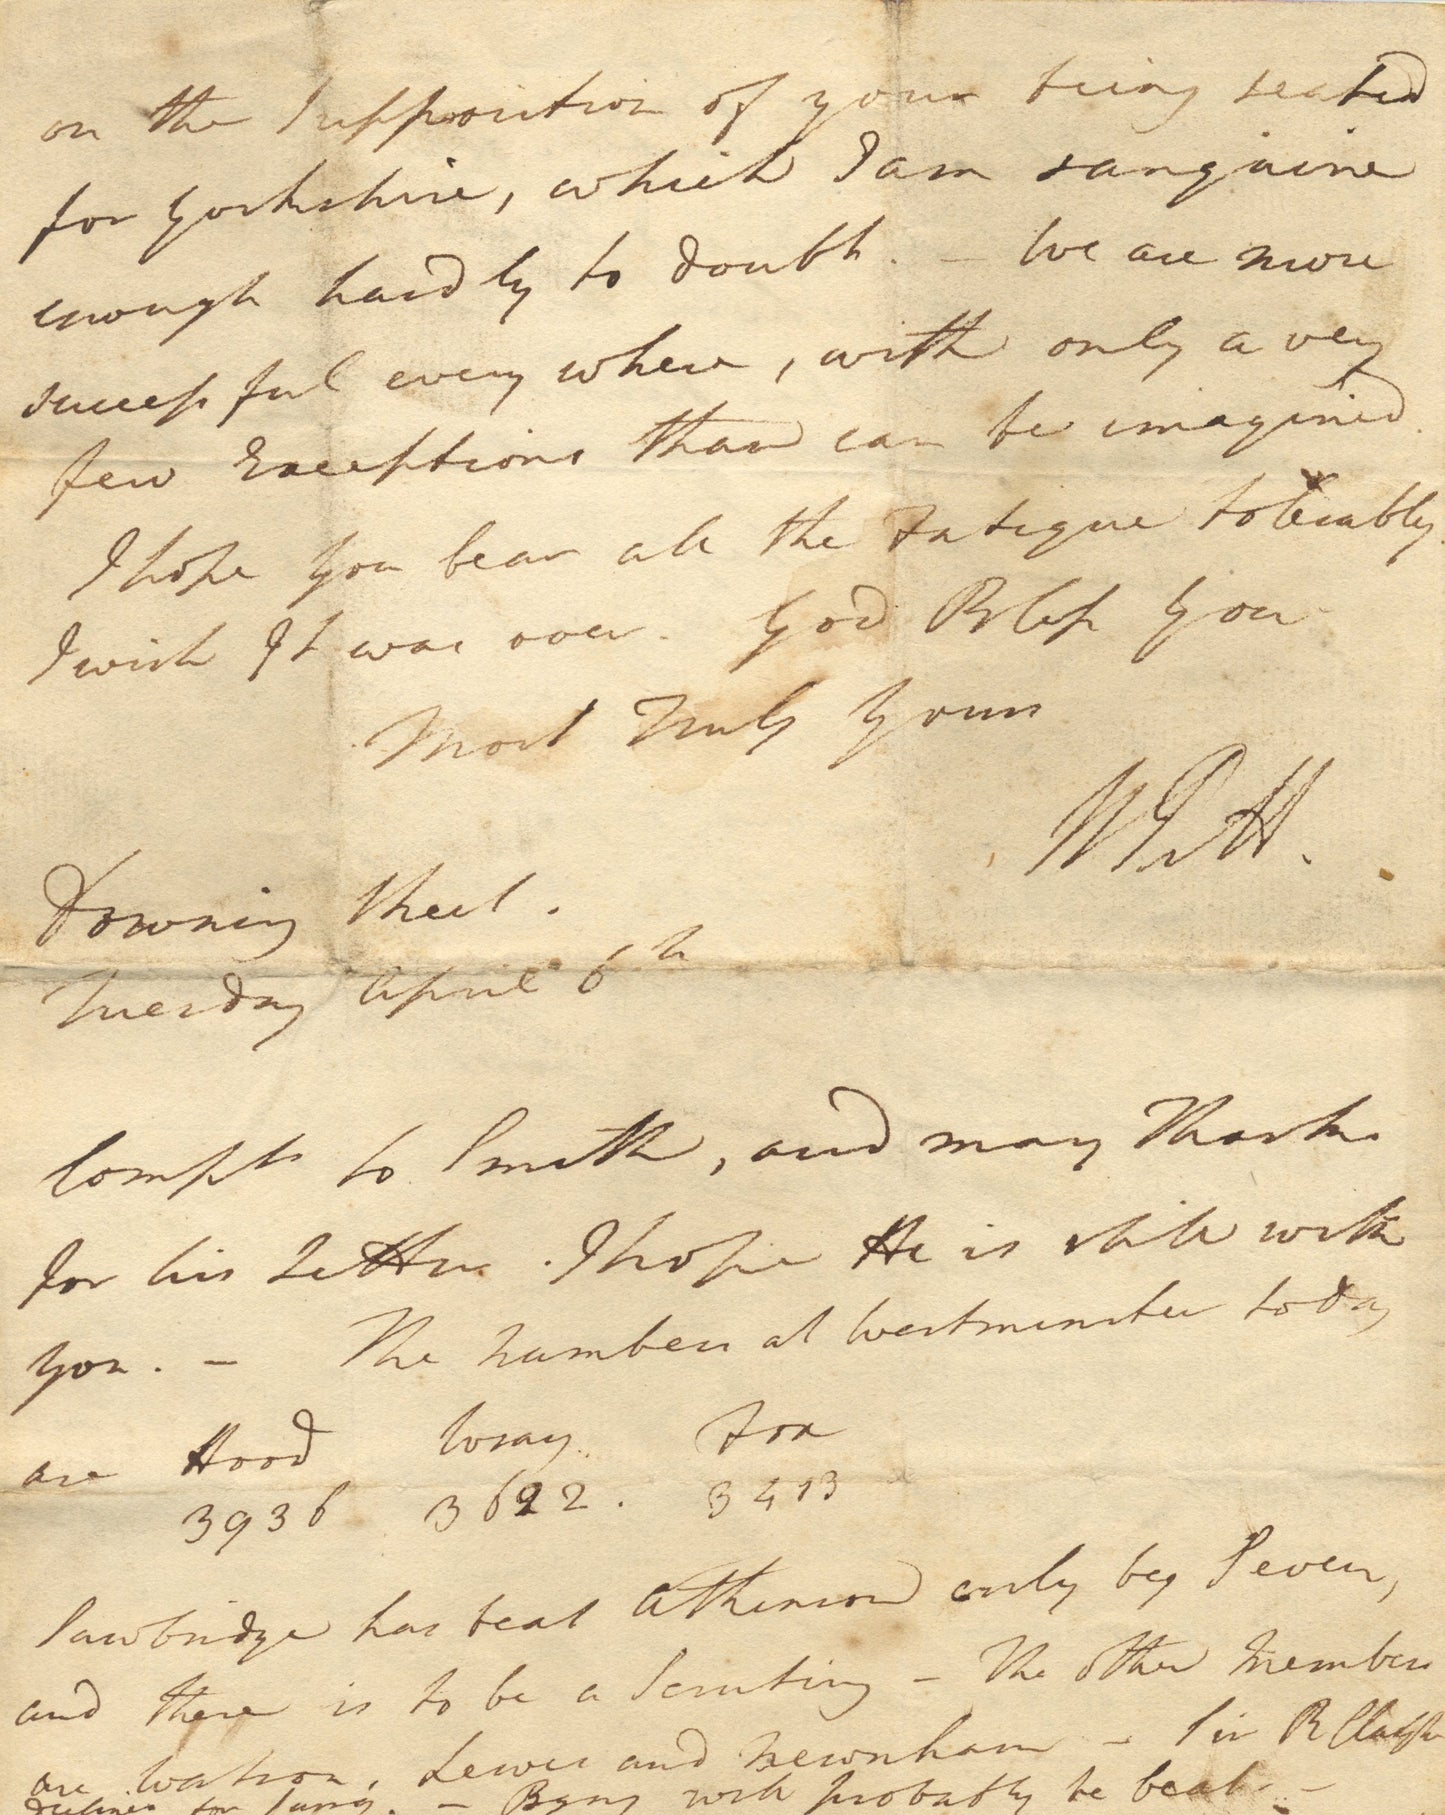 on the Supposition of your being seated
for Yorkshire, which I am sanguine
enough hardly to doubt. – We are more
successful every where, with only a very
few Exceptions than can be imagined.
I hope you bear all the Fatigue tolerably.
I wish It was over. God Bless you
Most Truly Yours
W Pitt.
Downing Street.
Tuesday April 6th
Compts to Smith, and many Thanks
for his Letters. I hope He is still with
you. – The numbers at Westminster today
are Hood Wray. Fox
3936 3622. 3413
Sawbridge has beat Atkinson only by Seven,
and there is to be a Scrutiny – The other Members
are Watson, Lewes and Newnham – Sir R Clayton
declines for Surry. – Byng will probably be beat. –